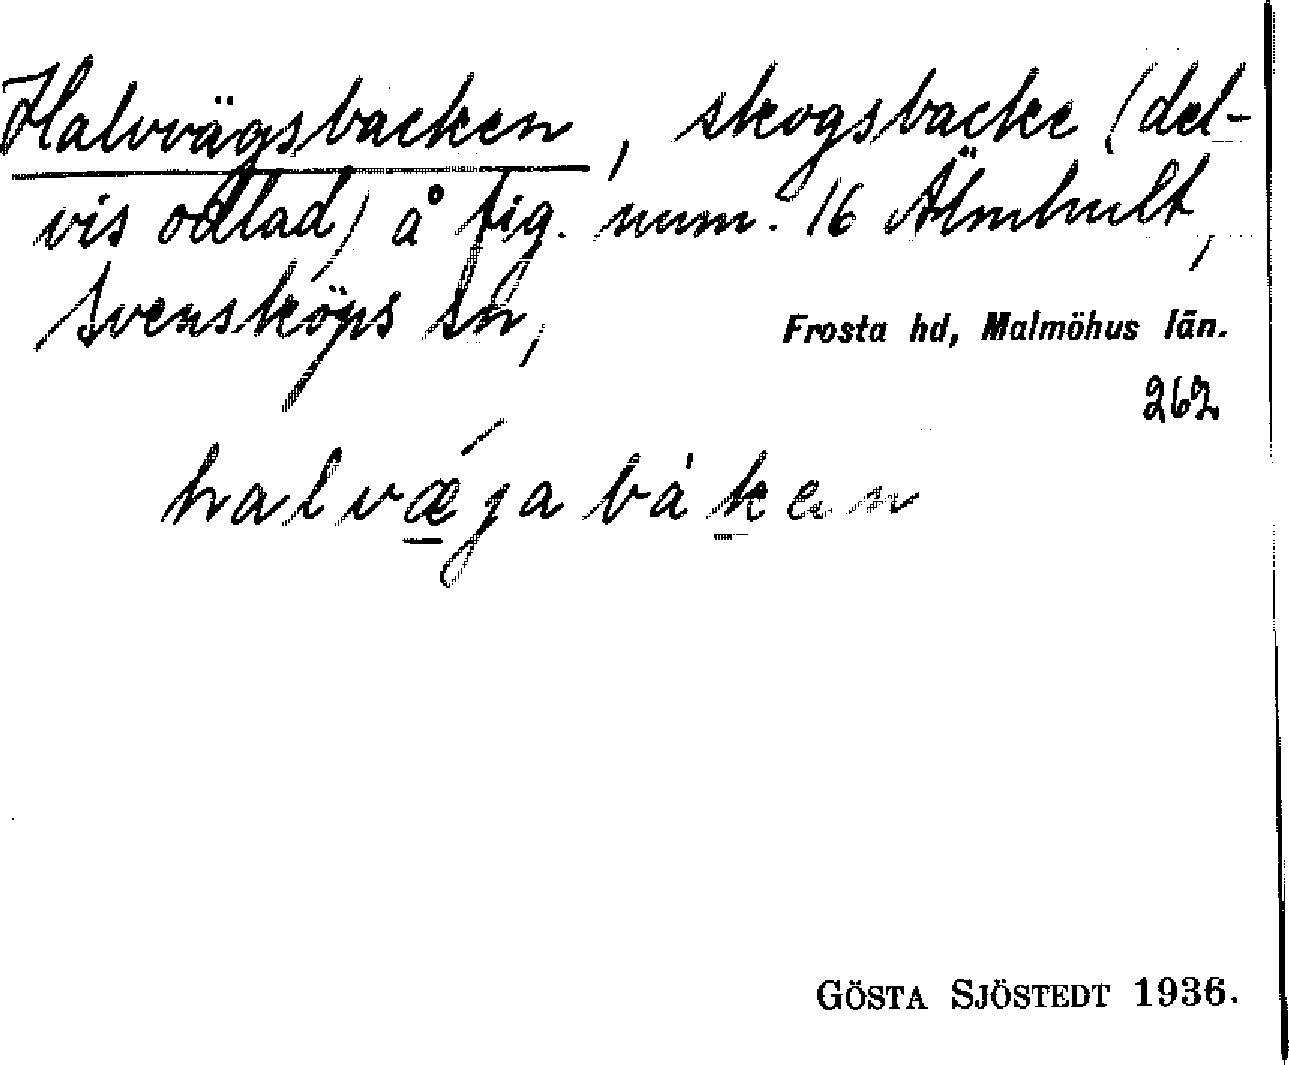 Halvvägsbacken, skogsbacke (del-
vis odlad) å fig. num. 16 Älmhult,
Svensköps sn,
Frosta hd, Malmöhus län.
262
halvǽ̱ȷabàḵen
GÖSTA SJÖSTEDT 1936.